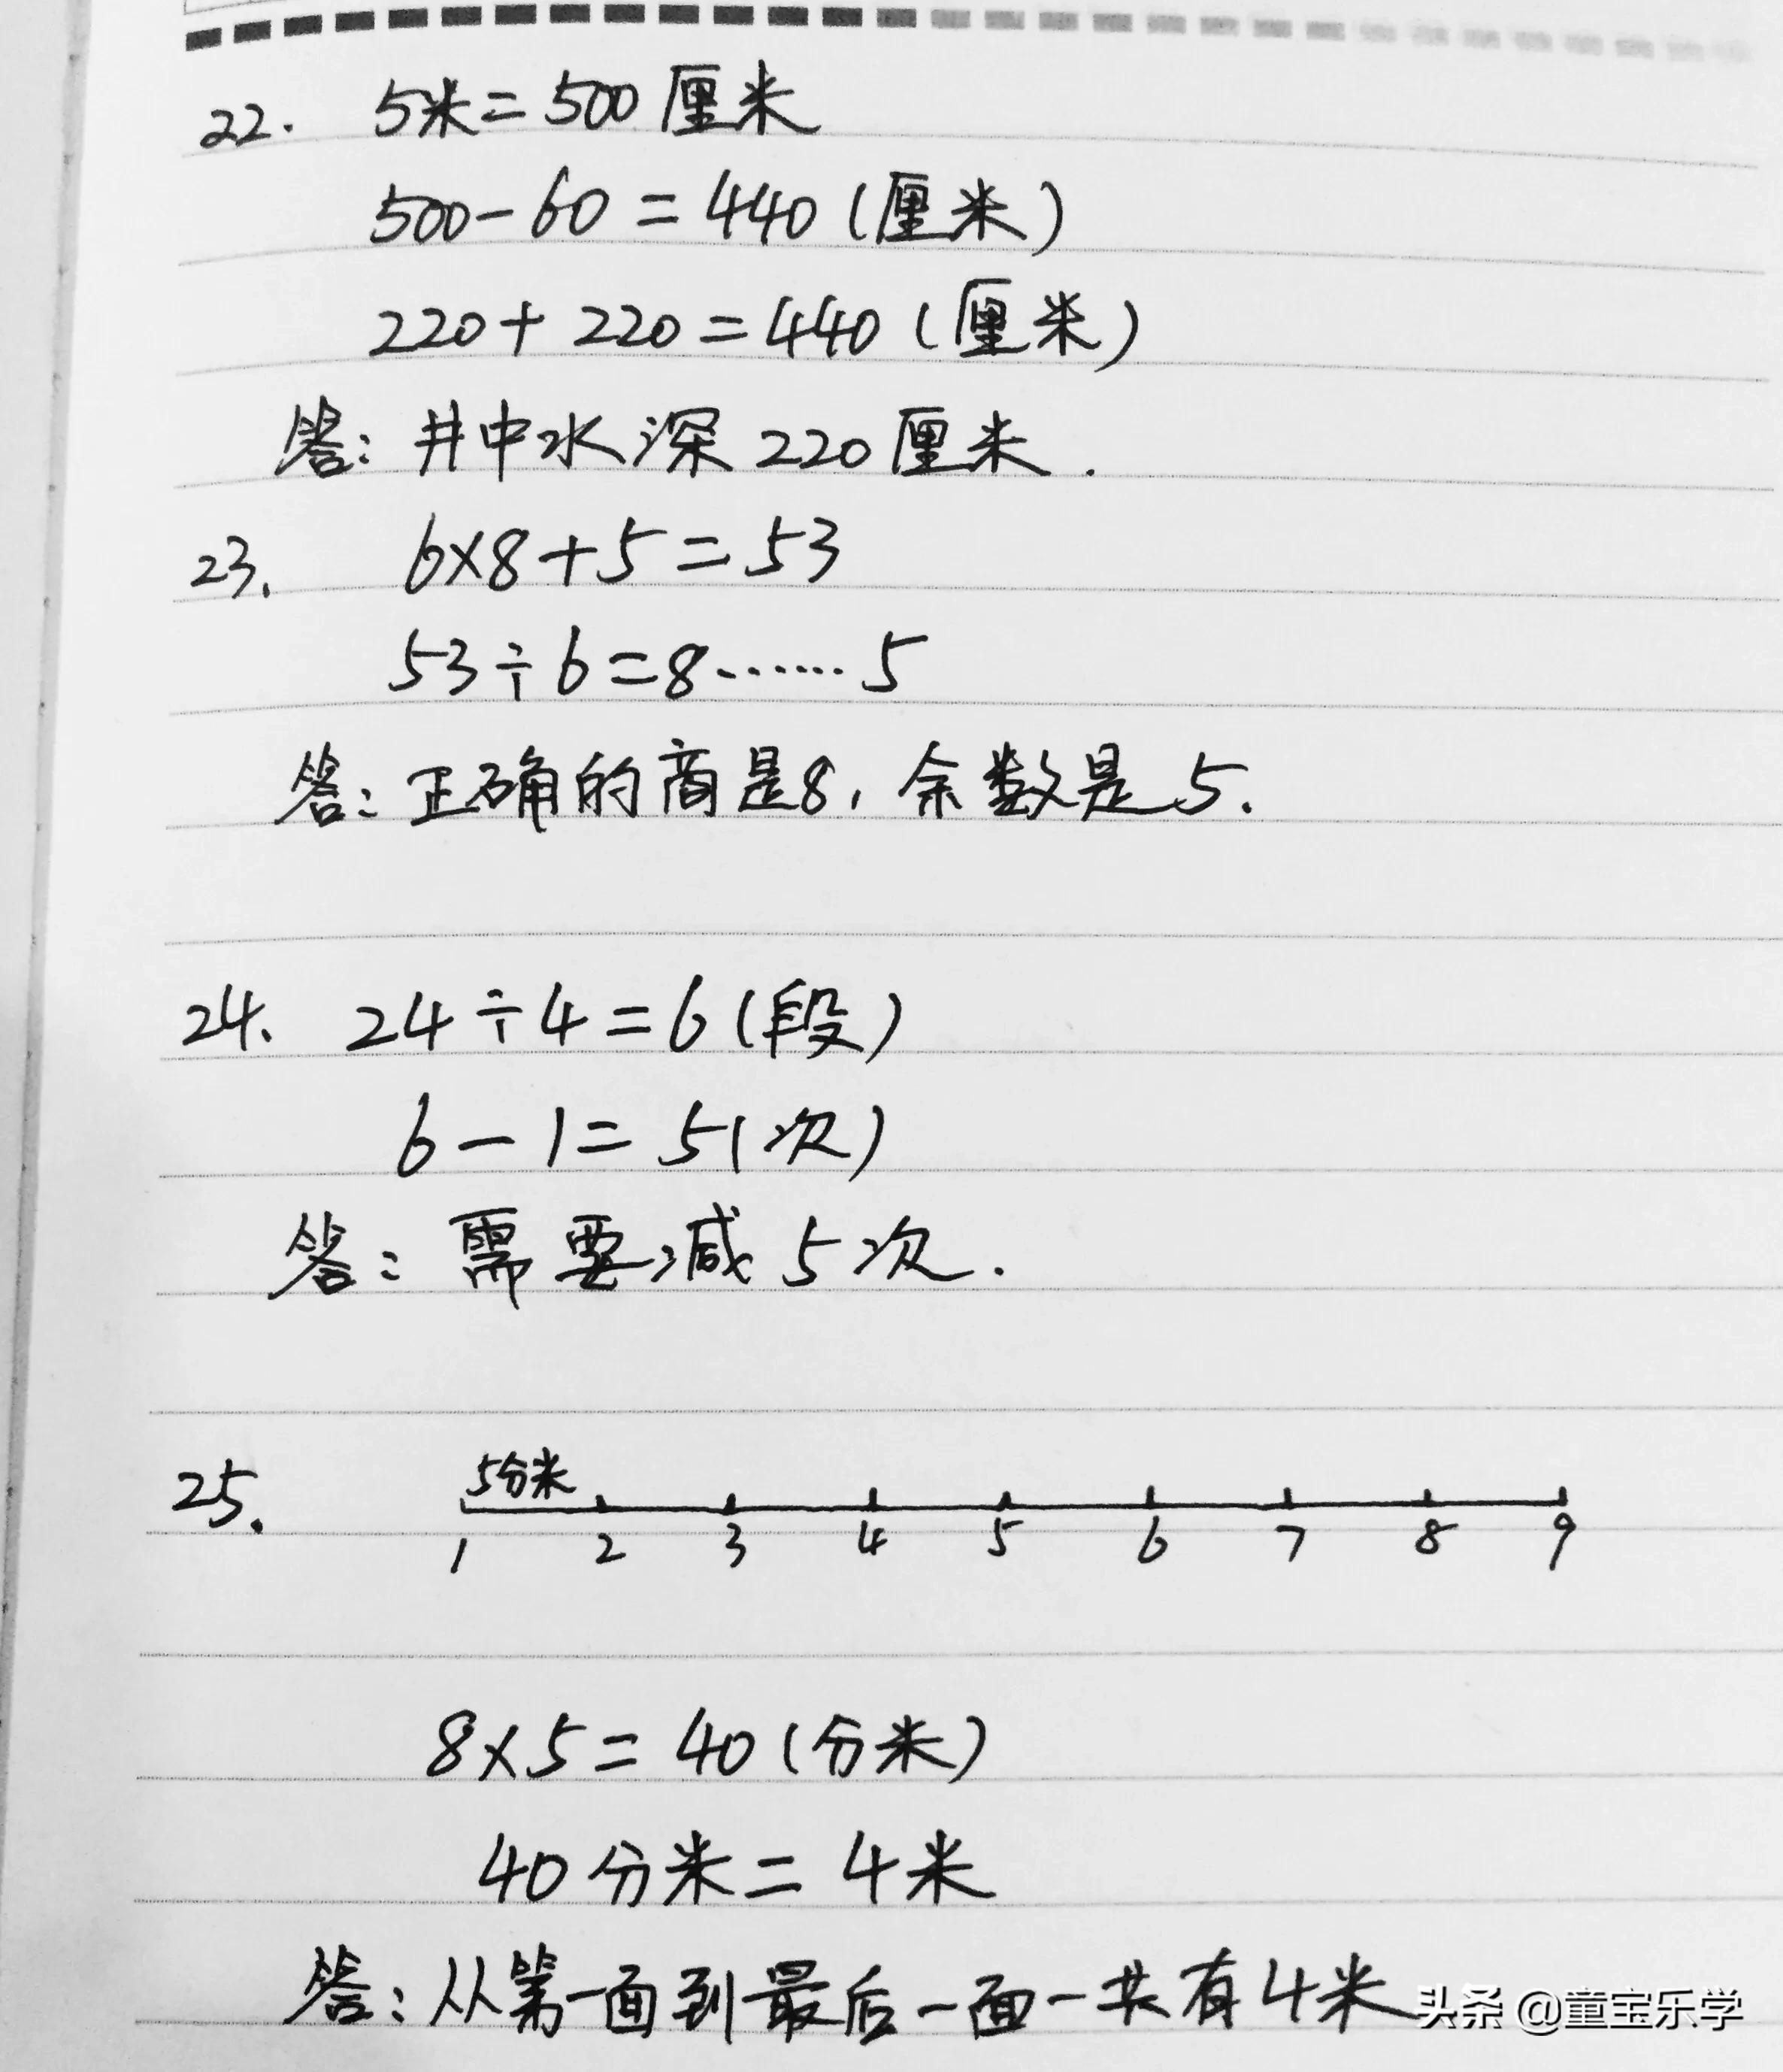 22. 5米=500厘米
500-60=440(厘米)
220+220=440(厘米)
答:井中水深220厘米.
23. 6×8+5=53
53÷6=8……5
答:正确的商是8,余数是5.
24. 24÷4=6(段)
6-1=5(次)
答:需要减5次.
25. 5分米
1 2 3 4 5 6 7 8 9
8×5=40(分米)
40分米=4米
答:从第一面到最后一面一共有4米
头条 @童宝乐学